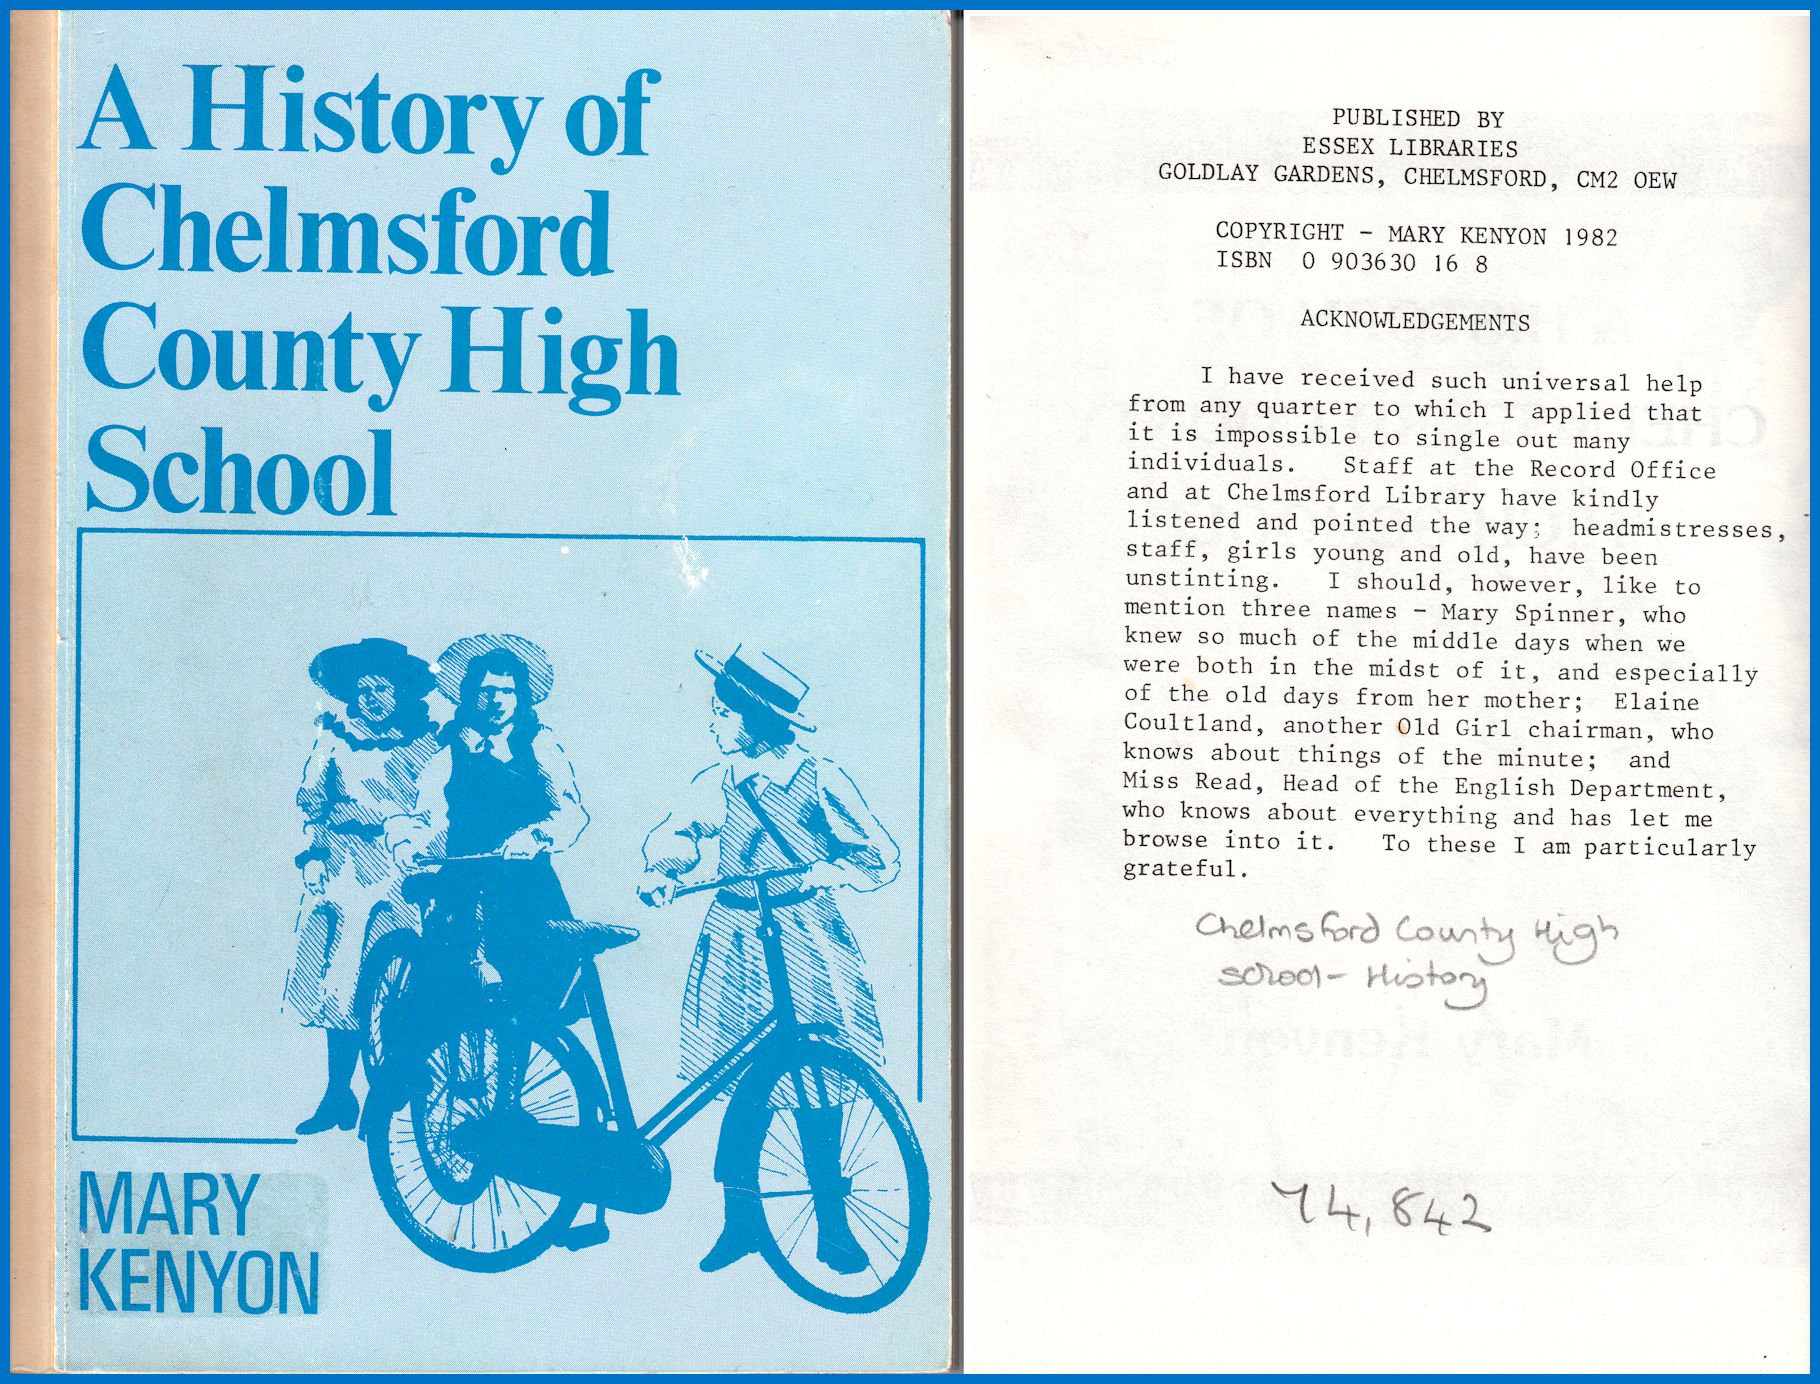 A History of
Chelmsford
County High
School
MARY
KENYON
PUBLISHED BY
ESSEX LIBRARIES
GOLDLAY GARDENS, CHELMSFORD, CM2 OEW
COPYRIGHT - MARY KENYON 1982
ISBN  0 903630 16 8
ACKNOWLEDGEMENTS
I have received such universal help
from any quarter to which I applied that
it is impossible to single out many
individuals.  Staff at the Record Office
and at Chelmsford Library have kindly
listened and pointed the way;  headmistresses,
staff, girls young and old, have been
unstinting.  I should, however, like to
mention three names - Mary Spinner, who
knew so much of the middle days when we
were both in the midst of it, and especially
of the old days from her mother;  Elaine
Coultland, another Old Girl chairman, who
knows about things of the minute;  and
Miss Read, Head of the English Department,
who knows about everything and has let me
browse into it.  To these I am particularly
grateful.
Chelmsford County High
school - History
74,842